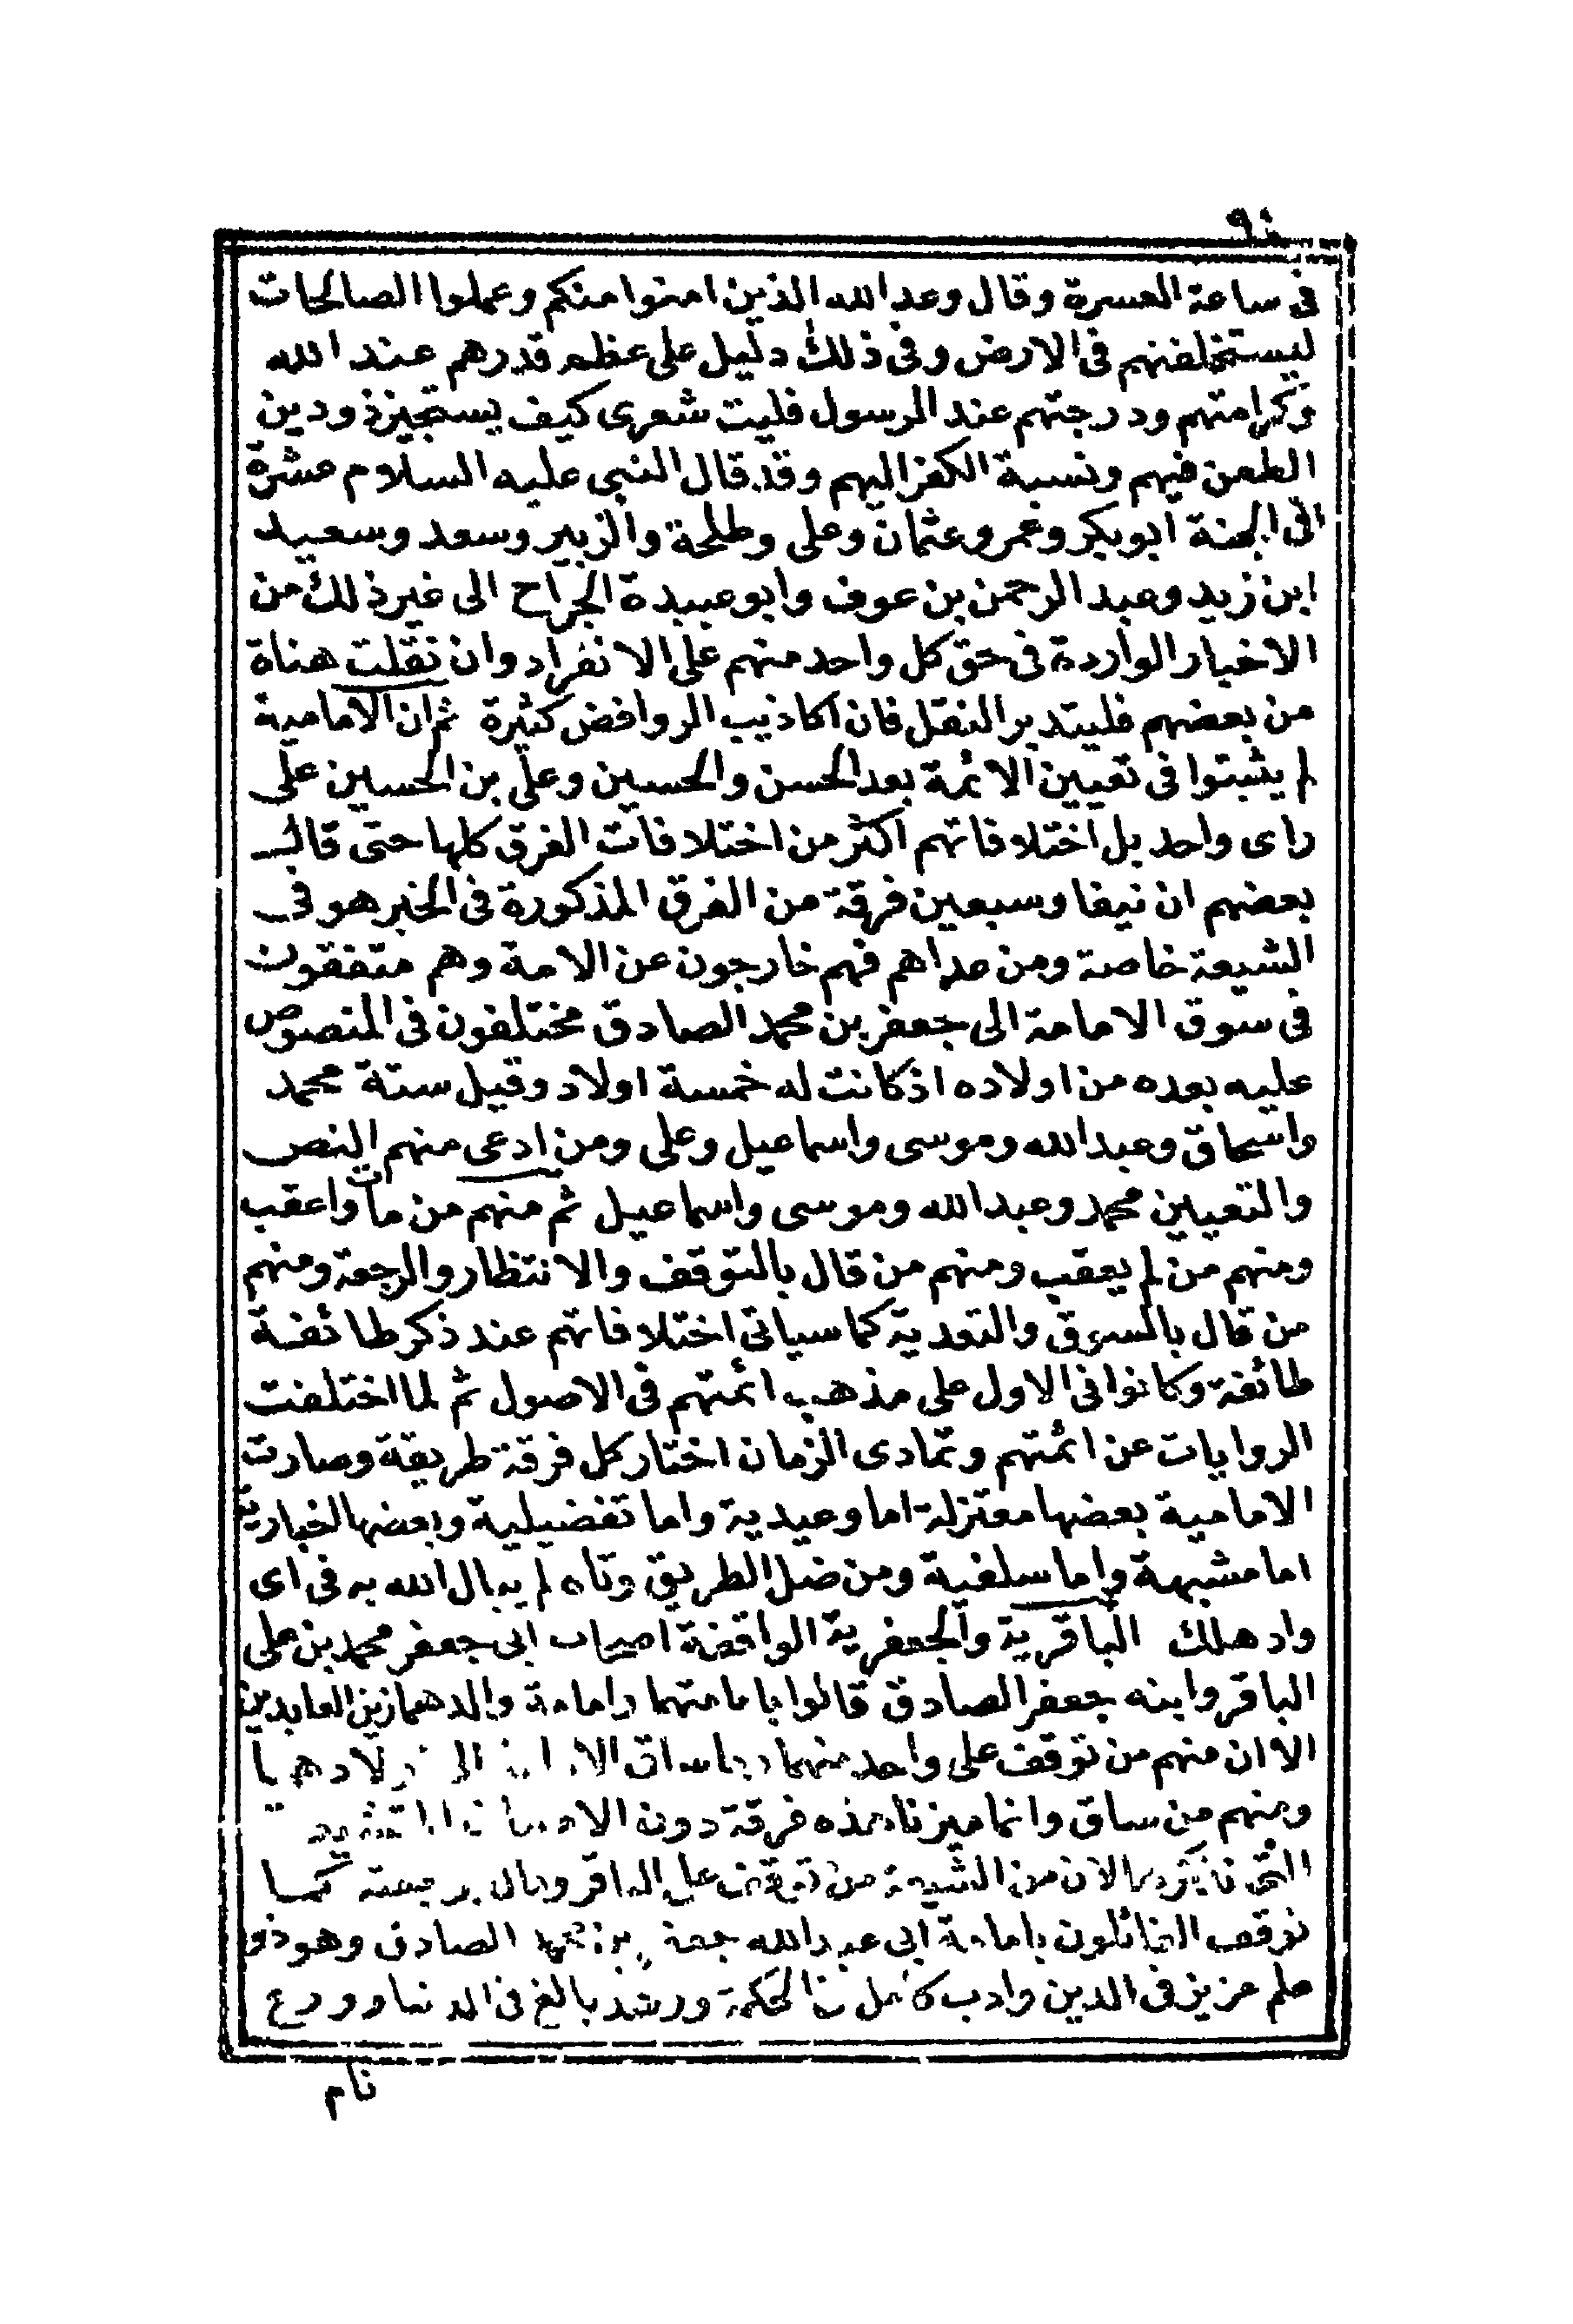 ٩٠
فى ساعة العسرة وقال وعد الله الذين امنوا منكم وعملوا الصالحات
ليستخلفنهم فى الارض وفى ذلك دليل على عظم قدرهم عند الله
وكرامتهم ودرجتهم عند الرسول فليت شعرى كيف يستجيز ذو دين
الطعن فيهم ونسبة الكفر اليهم وقد قال النبى عليه السلام عشرة
فى الجنة ابو بكر وعمر وعثمان وعلى وطلحة والزبير وسعد وسعيد
ابن زيد وعبد الرحمن بن عوف وابو عبيدة الجراح الى غير ذلك من
الاخبار الواردة فى حق كل واحد منهم على الانفراد وان نقلت هناة
من بعضهم فليتدبر النقل فان اكاذيب الروافض كثيرة ثم ان الامامية
لم يثبتوا فى تعيين الائمة بعد الحسن والحسين وعلى بن الحسين على
راى واحد بل اختلافاتهم اكثر من اختلافات الفرق كلها حتى قال
بعضهم ان نيفا وسبعين فرقة من الفرق المذكورة فى الخبر هو فى
الشيعة خاصة ومن عداهم فهم خارجون عن الامة وهم متفقون
فى سوق الامامة الى جعفر بن محمد الصادق مختلفون فى المنصوص
عليه بعده من اولاده اذ كانت له خمسة اولاد وقيل ستة محمد
واسحاق وعبد الله وموسى واسماعيل وعلى ومن ادعى منهم النص
والتعيين محمد وعبد الله وموسى واسماعيل ثم منهم من مات واعقب
ومنهم من لم يعقب ومنهم من قال بالتوقف والانتظار والرجعة ومنهم
من قال بالسوق والتعدية كما سياتى اختلافاتهم عند ذكر طائفة
طائفة وكانوا فى الاول على مذهب ائمتهم فى الاصول ثم لما اختلفت
الروايات عن ائمتهم وتمادى الزمان اختار كل فرقة طريقة وصارت
الامامية بعضها معتزلة اما وعيدية واما تفضيلية وبعضها اخبارية
اما مشبهة واما سلفية ومن ضل الطريق وتاه لم يبال الله به فى اى
واد هلك الباقرية والجعفرية الواقفة اصحاب ابى جعفر محمد بن على
الباقر وابنه جعفر الصادق قالوا بامامتهما وامامة والدهما زين العابدين
الا ان منهم من توقف على واحد منهما وما ساق الى اولادهما
ومنهم من ساق وانما ميزنا هذه فرقة دون
من الشيعة من توقف على الباقر وقال برجعته كما
توقف القائلون بامامة ابى عبد الله جعفر بن محمد الصادق وهو ذو
علم عزيز فى الدين وادب كامل فى الحكمة وزهد بالغ فى الدنيا وورع
تام